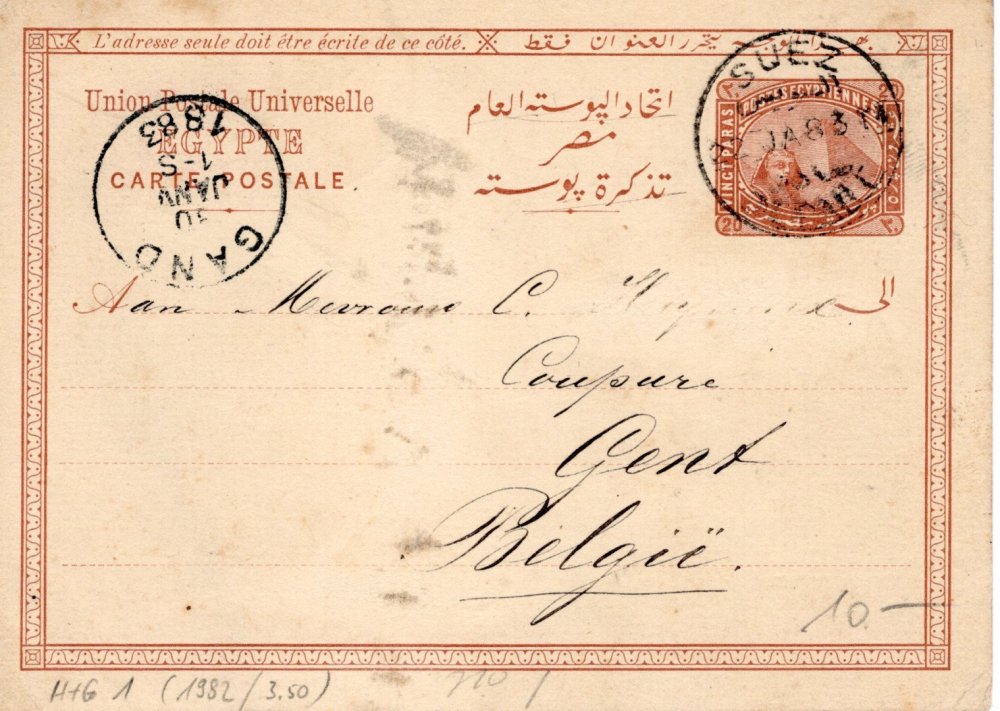 L'adresse seule doit être écrite de ce côté. العنوان فقط
Union Postale Universelle
EGYPTE
CARTE POSTALE
اتحاد البوسته العام
مصر
تذكرة بوسته
SUEZ
JA 83
20
GAND
10
JANV
1-S
1883
Aan Mevrouw C. الى
Coupure
Gent
België.
10.—
H+G 1 (1982/3.50)